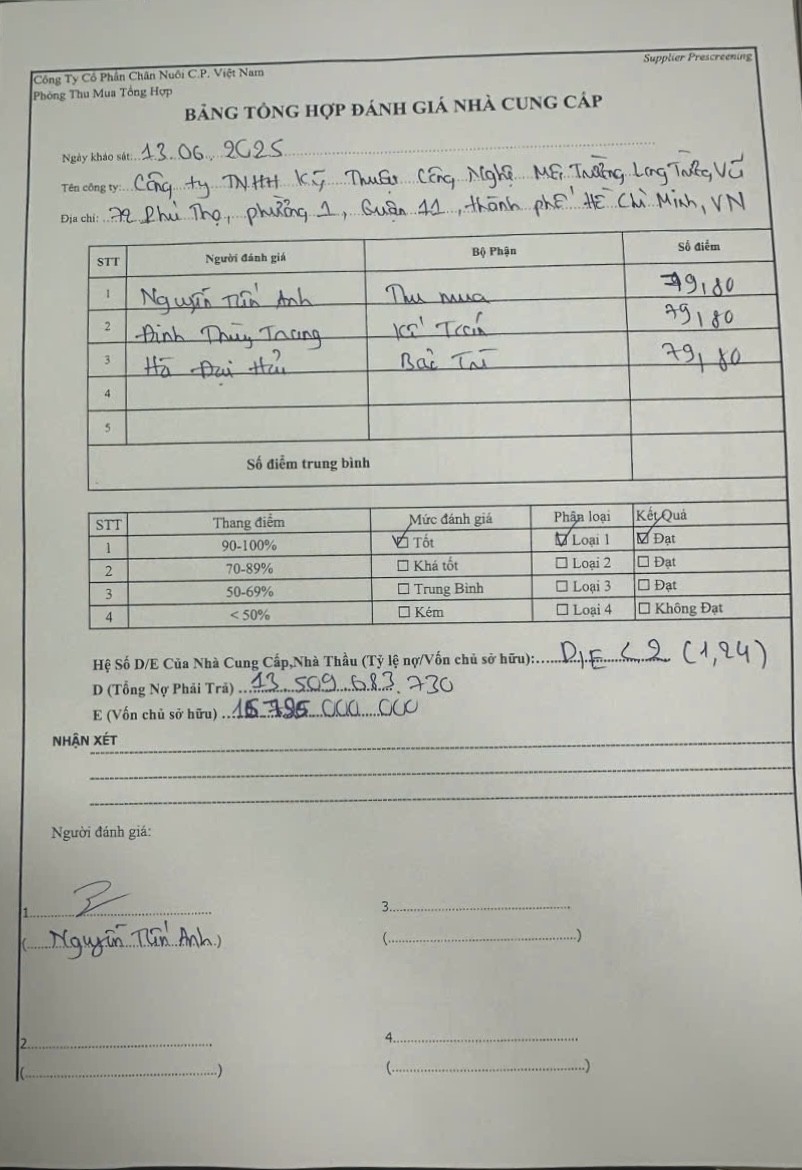 Supplier Prescreening
Công Ty Cổ Phần Chăn Nuôi C.P. Việt Nam
Phòng Thu Mua Tổng Hợp
BẢNG TỔNG HỢP ĐÁNH GIÁ NHÀ CUNG CẤP
Ngày khảo sát: 13.06.2025
Tên công ty: Công ty TNHH Kỹ Thuật Công Nghệ Môi Trường Long Trường Vũ
Địa chỉ: 72 Phú Thọ, phường 1, Quận 11, thành phố Hồ Chí Minh, VN
STT Người đánh giá Bộ Phận Số điểm
1 Nguyễn Tiến Anh Thu mua 79,80
2 Đinh Thùy Trang Kế Toán 79,80
3 Hà Đại Hải Bảo Trì 79,80
4
5
Số điểm trung bình
STT Thang điểm Mức đánh giá Phân loại Kết Quả
1 90-100% ☑ Tốt ☑ Loại 1 ☑ Đạt
2 70-89% ☐ Khá tốt ☐ Loại 2 ☐ Đạt
3 50-69% ☐ Trung Bình ☐ Loại 3 ☐ Đạt
4 < 50% ☐ Kém ☐ Loại 4 ☐ Không Đạt
Hệ Số D/E Của Nhà Cung Cấp,Nhà Thầu (Tỷ lệ nợ/Vốn chủ sở hữu): D/E < 2 (1,24)
D (Tổng Nợ Phải Trả) 13.509.683.730
E (Vốn chủ sở hữu) 000.000
NHẬN XÉT
Người đánh giá:
1. 3.
(Nguyễn Tiến Anh) ( )
2. 4.
( ) ( )